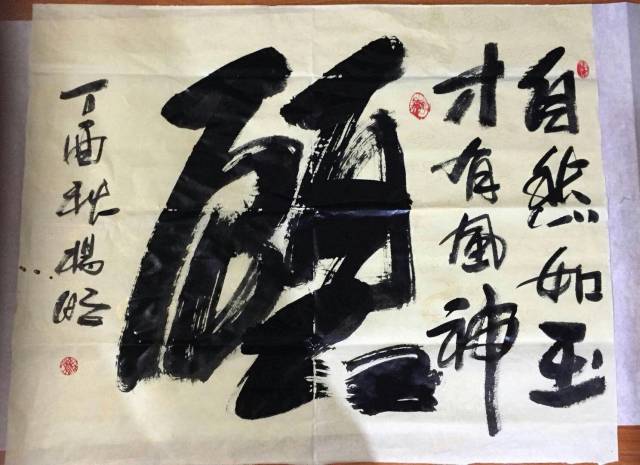 自然如玉
才有風神
丁酉秋楊